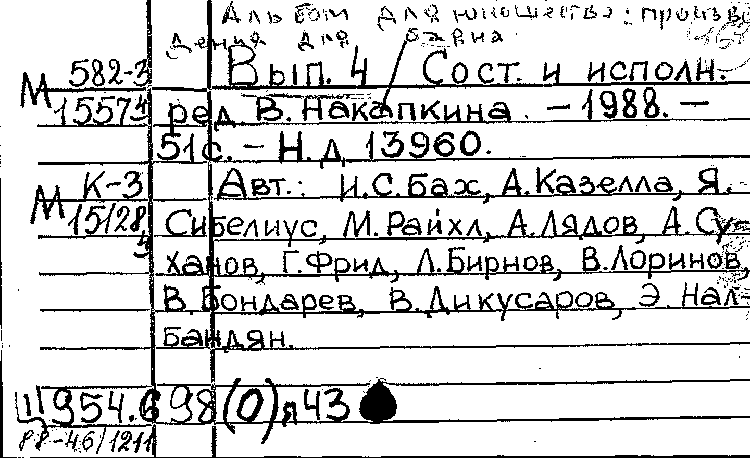 Альбом для юношества: произве
дения для баяна.
582-3 Вып. 4 Сост. и исполн.
М 15573/4 ред. В. Накапкина. – 1988. –
51с. – Н.д. 13960.
К-3 Авт.: И.С.Бах, А.Казелла, Я.
М 15128/4 Сибелиус, М.Райхл, А.Лядов, А.Су-
ханов, Г.Фрид, Л.Бирнов, В.Лоринов,
В.Бондарев, В.Дикусаров, Э.Нал-
бандян.
Ц 954.698(0)я43
РР-46/1211